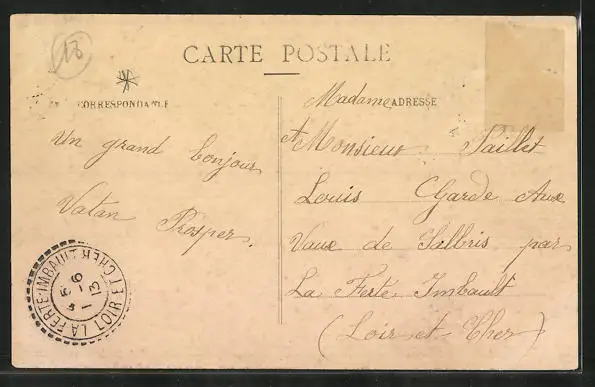 13
CARTE POSTALE
CORRESPONDANCE
ADRESSE
Un grand bonjour
Vatan Prosper.
Madame
et Monsieur Paillet
Louis Garde Aux
Vaux de Salbris par
La Ferté Imbault
(Loir et Cher)
LA FERTE-IMBAULT
LOIR ET CHER
5 - 6
13